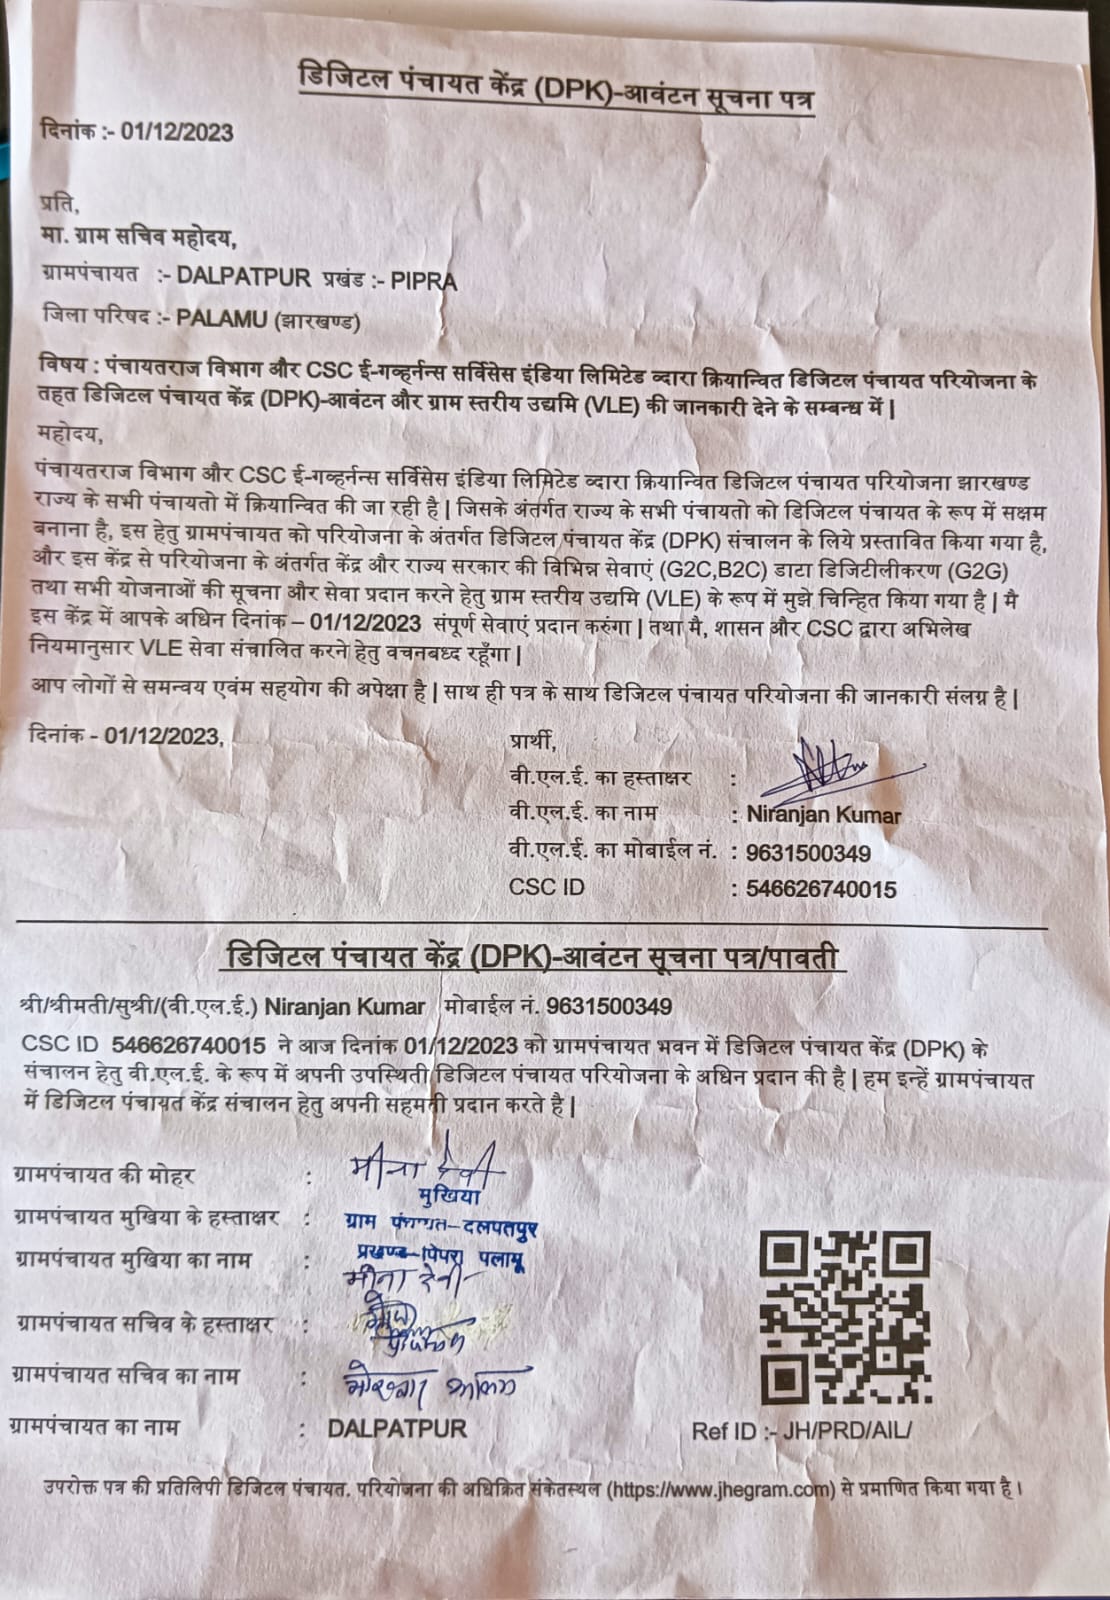 डिजिटल पंचायत केंद्र (DPK)-आवंटन सूचना पत्र
दिनांक :- 01/12/2023
प्रति,
मा. ग्राम सचिव महोदय,
ग्रामपंचायत :- DALPATPUR प्रखंड :- PIPRA
जिला परिषद :- PALAMU (झारखण्ड)
विषय : पंचायतराज विभाग और CSC ई-गव्हर्नन्स सर्विसेस इंडिया लिमिटेड व्दारा क्रियान्वित डिजिटल पंचायत परियोजना के
तहत डिजिटल पंचायत केंद्र (DPK)-आवंटन और ग्राम स्तरीय उद्यमि (VLE) की जानकारी देने के सम्बन्ध में |
महोदय,
पंचायतराज विभाग और CSC ई-गव्हर्नन्स सर्विसेस इंडिया लिमिटेड व्दारा क्रियान्वित डिजिटल पंचायत परियोजना झारखण्ड
राज्य के सभी पंचायतो में क्रियान्वित की जा रही है | जिसके अंतर्गत राज्य के सभी पंचायतो को डिजिटल पंचायत के रूप में सक्षम
बनाना है, इस हेतु ग्रामपंचायत को परियोजना के अंतर्गत डिजिटल पंचायत केंद्र (DPK) संचालन के लिये प्रस्तावित किया गया है,
और इस केंद्र से परियोजना के अंतर्गत केंद्र और राज्य सरकार की विभिन्न सेवाएं (G2C,B2C) डाटा डिजिटीलीकरण (G2G)
तथा सभी योजनाओं की सूचना और सेवा प्रदान करने हेतु ग्राम स्तरीय उद्यमि (VLE) के रूप में मुझे चिन्हित किया गया है | मै
इस केंद्र में आपके अधिन दिनांक – 01/12/2023 संपूर्ण सेवाएं प्रदान करुंगा | तथा मै, शासन और CSC द्वारा अभिलेख
नियमानुसार VLE सेवा संचालित करने हेतु वचनबध्द रहूँगा |
आप लोगों से समन्वय एवंम सहयोग की अपेक्षा है | साथ ही पत्र के साथ डिजिटल पंचायत परियोजना की जानकारी संलग्न है |
दिनांक - 01/12/2023,
प्रार्थी,
वी.एल.ई. का हस्ताक्षर :
वी.एल.ई. का नाम : Niranjan Kumar
वी.एल.ई. का मोबाईल नं. : 9631500349
CSC ID : 546626740015
डिजिटल पंचायत केंद्र (DPK)-आवंटन सूचना पत्र/पावती
श्री/श्रीमती/सुश्री/(वी.एल.ई.) Niranjan Kumar मोबाईल नं. 9631500349
CSC ID 546626740015 ने आज दिनांक 01/12/2023 को ग्रामपंचायत भवन में डिजिटल पंचायत केंद्र (DPK) के
संचालन हेतु वी.एल.ई. के रूप में अपनी उपस्थिती डिजिटल पंचायत परियोजना के अधिन प्रदान की है | हम इन्हें ग्रामपंचायत
में डिजिटल पंचायत केंद्र संचालन हेतु अपनी सहमती प्रदान करते है |
ग्रामपंचायत की मोहर : मीना देवी
मुखिया
ग्रामपंचायत मुखिया के हस्ताक्षर : ग्राम पंचायत-दलपतपुर
ग्रामपंचायत मुखिया का नाम : प्रखण्ड-पिपरा पलामू
मीना देवी
ग्रामपंचायत सचिव के हस्ताक्षर :
ग्रामपंचायत सचिव का नाम :
ग्रामपंचायत का नाम : DALPATPUR
Ref ID :- JH/PRD/AIL/
उपरोक्त पत्र की प्रतिलिपी डिजिटल पंचायत. परियोजना की अधिक्रित संकेतस्थल (https://www.jhegram.com) से प्रमाणित किया गया है ।